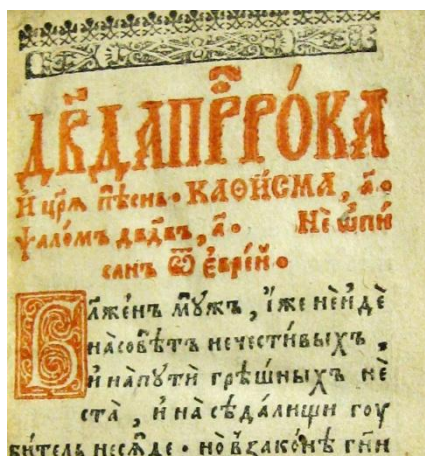 Дв҃да прⷪ҇ро́ка
И҆ цр҃ѧ̀ пѣ́снь. каѳи́сма, а҃.
Ѱало́мъ дв҃двъ, а҃. Не ѡ҆пи́
санъ ѿ є҆врє́й.
Бл҃же́нъ мꙋ́жъ, и҆́же не и҆́де
на совѣ́тъ нечести́выхъ,
и҆ на пꙋти̑ грѣ́шныхъ не
ста̀, и҆ на сѣда́лищи гоу
би́тель несѧ́де. но в̾ зако́нѣ гн҃и